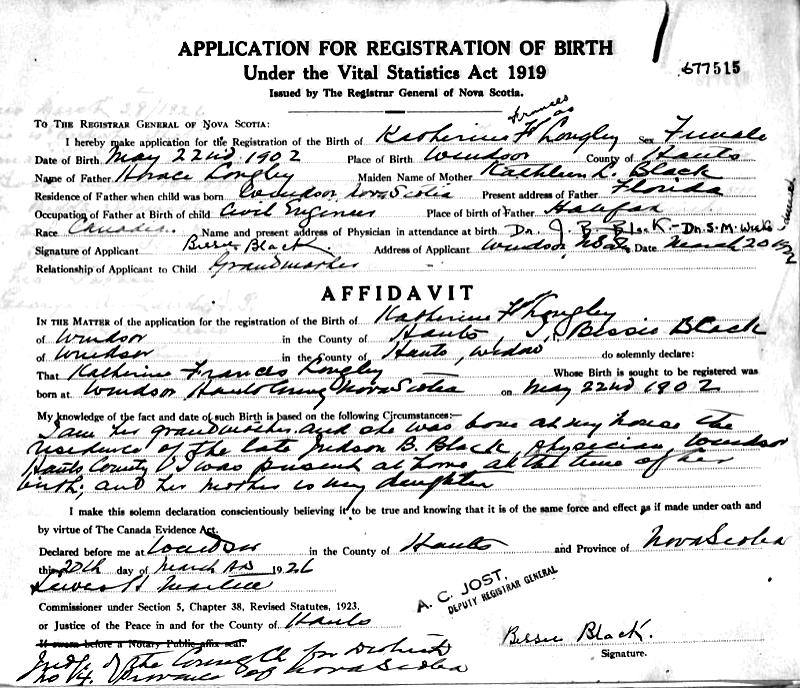 APPLICATION FOR REGISTRATION OF BIRTH
Under the Vital Statistics Act 1919
677515
Issued by The Registrar General of Nova Scotia.
Frances
TO THE REGISTRAR GENERAL OF NOVA SCOTIA:
I hereby make application for the Registration of the Birth of Katherine F Longley Sex Female
Date of Birth May 22nd, 1902 Place of Birth Windsor County of Hants
Name of Father Horace Longley Maiden Name of Mother Kathleen L. Black
Residence of Father when child was born Windsor, Nova Scotia Present address of Father Florida
Occupation of Father at Birth of child Civil Engineer Place of birth of Father Halifax
Race Canadian Name and present address of Physician in attendance at birth Dr. J. B. Black - Dr. S. M. Weeks
Signature of Applicant Bessie Black. Address of Applicant Windsor, Date March 20
Relationship of Applicant to Child Grandmother
AFFIDAVIT
IN THE MATTER of the application for the registration of the Birth of Katherine F Longley
of Windsor in the County of Hants I, Bessie Black
of Windsor in the County of Hants, widow, do solemnly declare:
That Katherine Frances Longley Whose Birth is sought to be registered was
born at Windsor Hants County Nova Scotia on May 22nd 1902
My knowledge of the fact and date of such Birth is based on the following Circumstances:—
I am her grandmother and she was born at my house the
residence of the late Judson B. Black, physician, Windsor
Hants County I was present at home at the time of her
birth; and her mother is my daughter
I make this solemn declaration conscientiously believing it to be true and knowing that it is of the same force and effect as if made under oath and
by virtue of The Canada Evidence Act.
Declared before me at Windsor in the County of Hants and Province of Nova Scotia
this 20th day of March AD 1926
A. C. JOST,
DEPUTY REGISTRAR GENERAL
Commissioner under Section 5, Chapter 38, Revised Statutes, 1923,
or Justice of the Peace in and for the County of Hants
If sworn before a Notary Public affix seal.
Bessie Black.
Signature.
Judge of the County Ct for District
No 4. Province of Nova Scotia